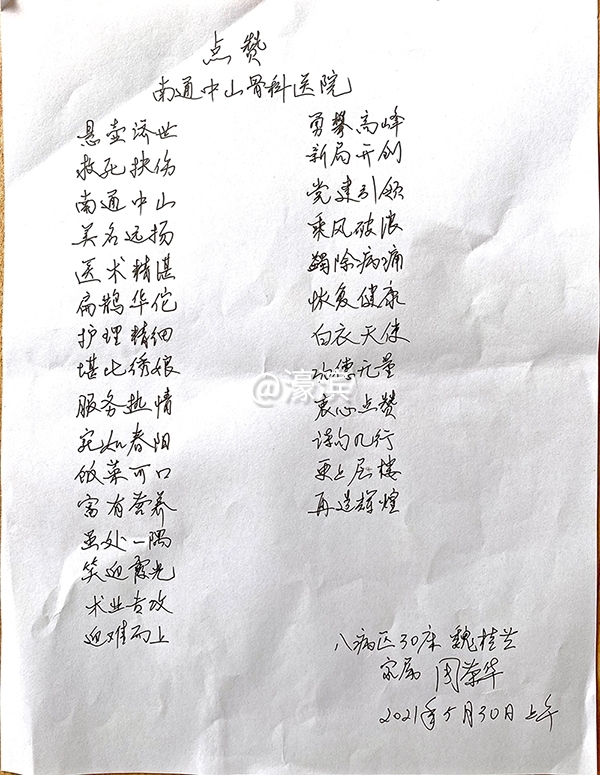 点赞
南通中山骨科医院
悬壶济世
救死扶伤
南通中山
美名远扬
医术精湛
扁鹊华佗
护理精细
堪比绣娘
服务热情
宛如春阳
饭菜可口
富有营养
虽处一隅
笑迎霞光
术业专攻
迎难而上
勇攀高峰
新局开创
党建引领
乘风破浪
蠲除病痛
恢复健康
白衣天使
功德无量
衷心点赞
诗句几行
更上层楼
再造辉煌
八病区30床 魏桂兰
家属 周荣华
2021年5月30日上午
@濠滨